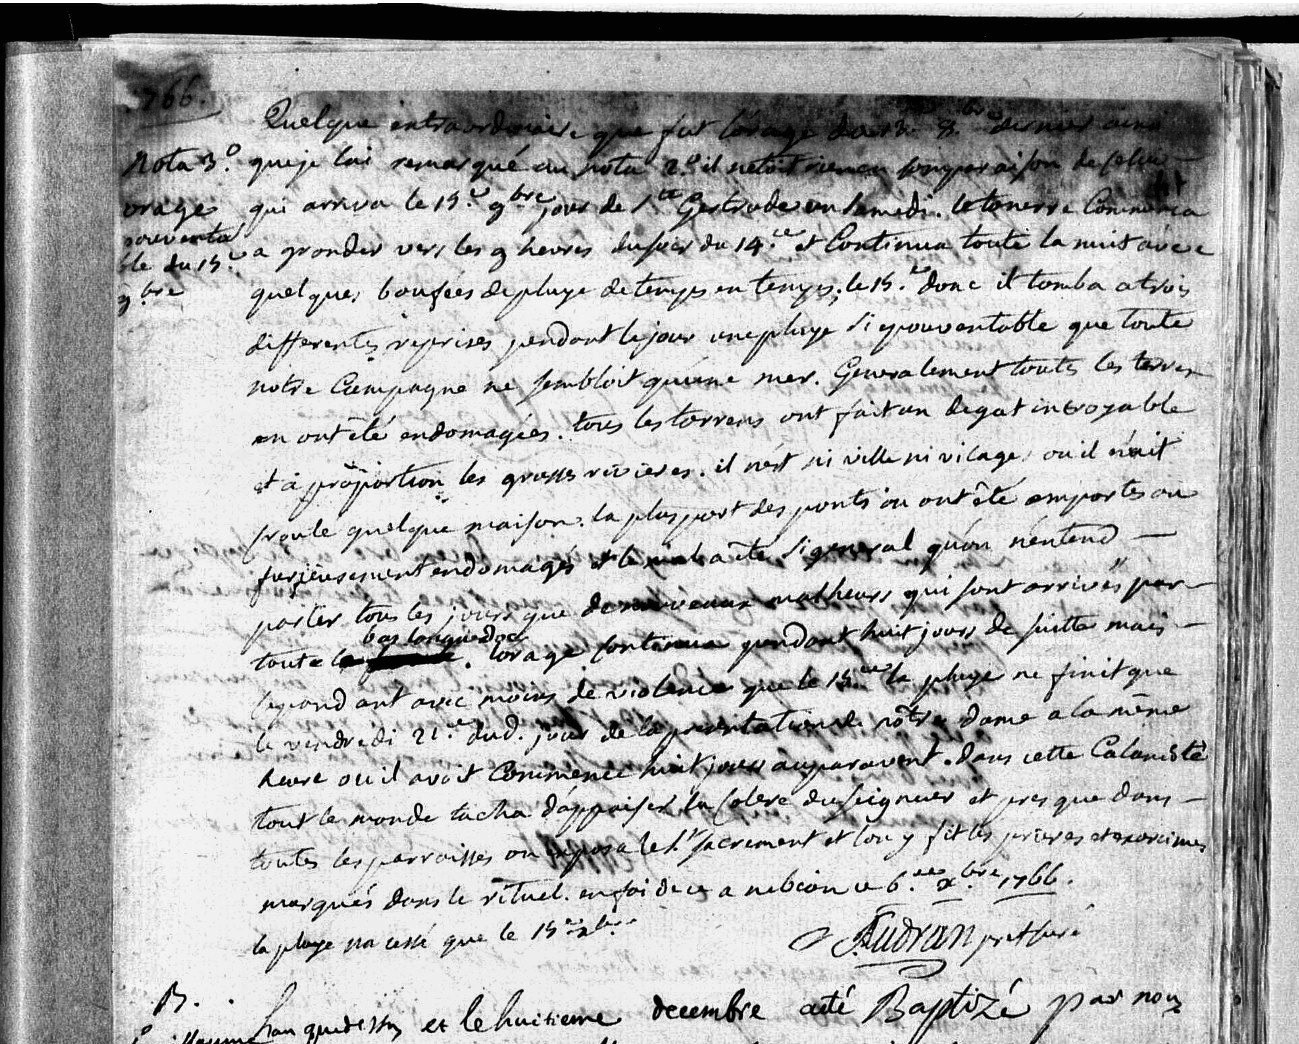 1766.
Quelque extraordinaire que fut l'orage du 13. 8.bre dernier ainsi
Nota 3.o
orage
epouventa
ble du 15.e
9bre
que je lai remarqué au nota 2.o il netoit rien en comparaison de celui
qui arriva le 15.e 9bre jour de Ste Gertrude un samedi. le tonerre Commença
a gronder vers les 9 heures du soir du 14.ce et Continua toute la nuit avec
quelques boufées de pluye de temps en temps, le 15.e donc il tomba a trois
differentes reprises pendant le jour une pluye si epouventable que toute
notre Campagne ne sembloit quune mer. Generalement toutes les terres
en ont été endomagées. tous les torrens ont fait un degat incroyable
et a proportion les grosses rivieres. il n'est ni ville ni vilage ou il n'ait
croulé quelque maison. la pluspart des ponts ou ont été emportés ou
furieusement endomagés et le mal a été si general qu'on n'entend
parler tous les jours que de nouveaux malheurs qui sont arrivés par
bas languedoc
toute le . lorage continua pendant huit jours de suitte mais
cependant avec moins de violence que le 15me la pluye ne finit que
le vendredi 21.e dud. jour de la presentation de nôtre dame a la même
heure ou il avoit Commencé huit jours auparavent. Dans cette Calamité
tout le monde tacha d'appaiser la Colere du Seigneur et presque dans
toutes les parroisses on exposa le St Sacrement et lon y fit les prieres et exorcimes
marqués dans le rituel. en foi de ce a nebian ce 6.ee xbre 1766.
la pluye na cessé que le 15e xbre
Audran pret curé
B.
lan que dessus et le huitieme decembre a eté Baptizé par nous